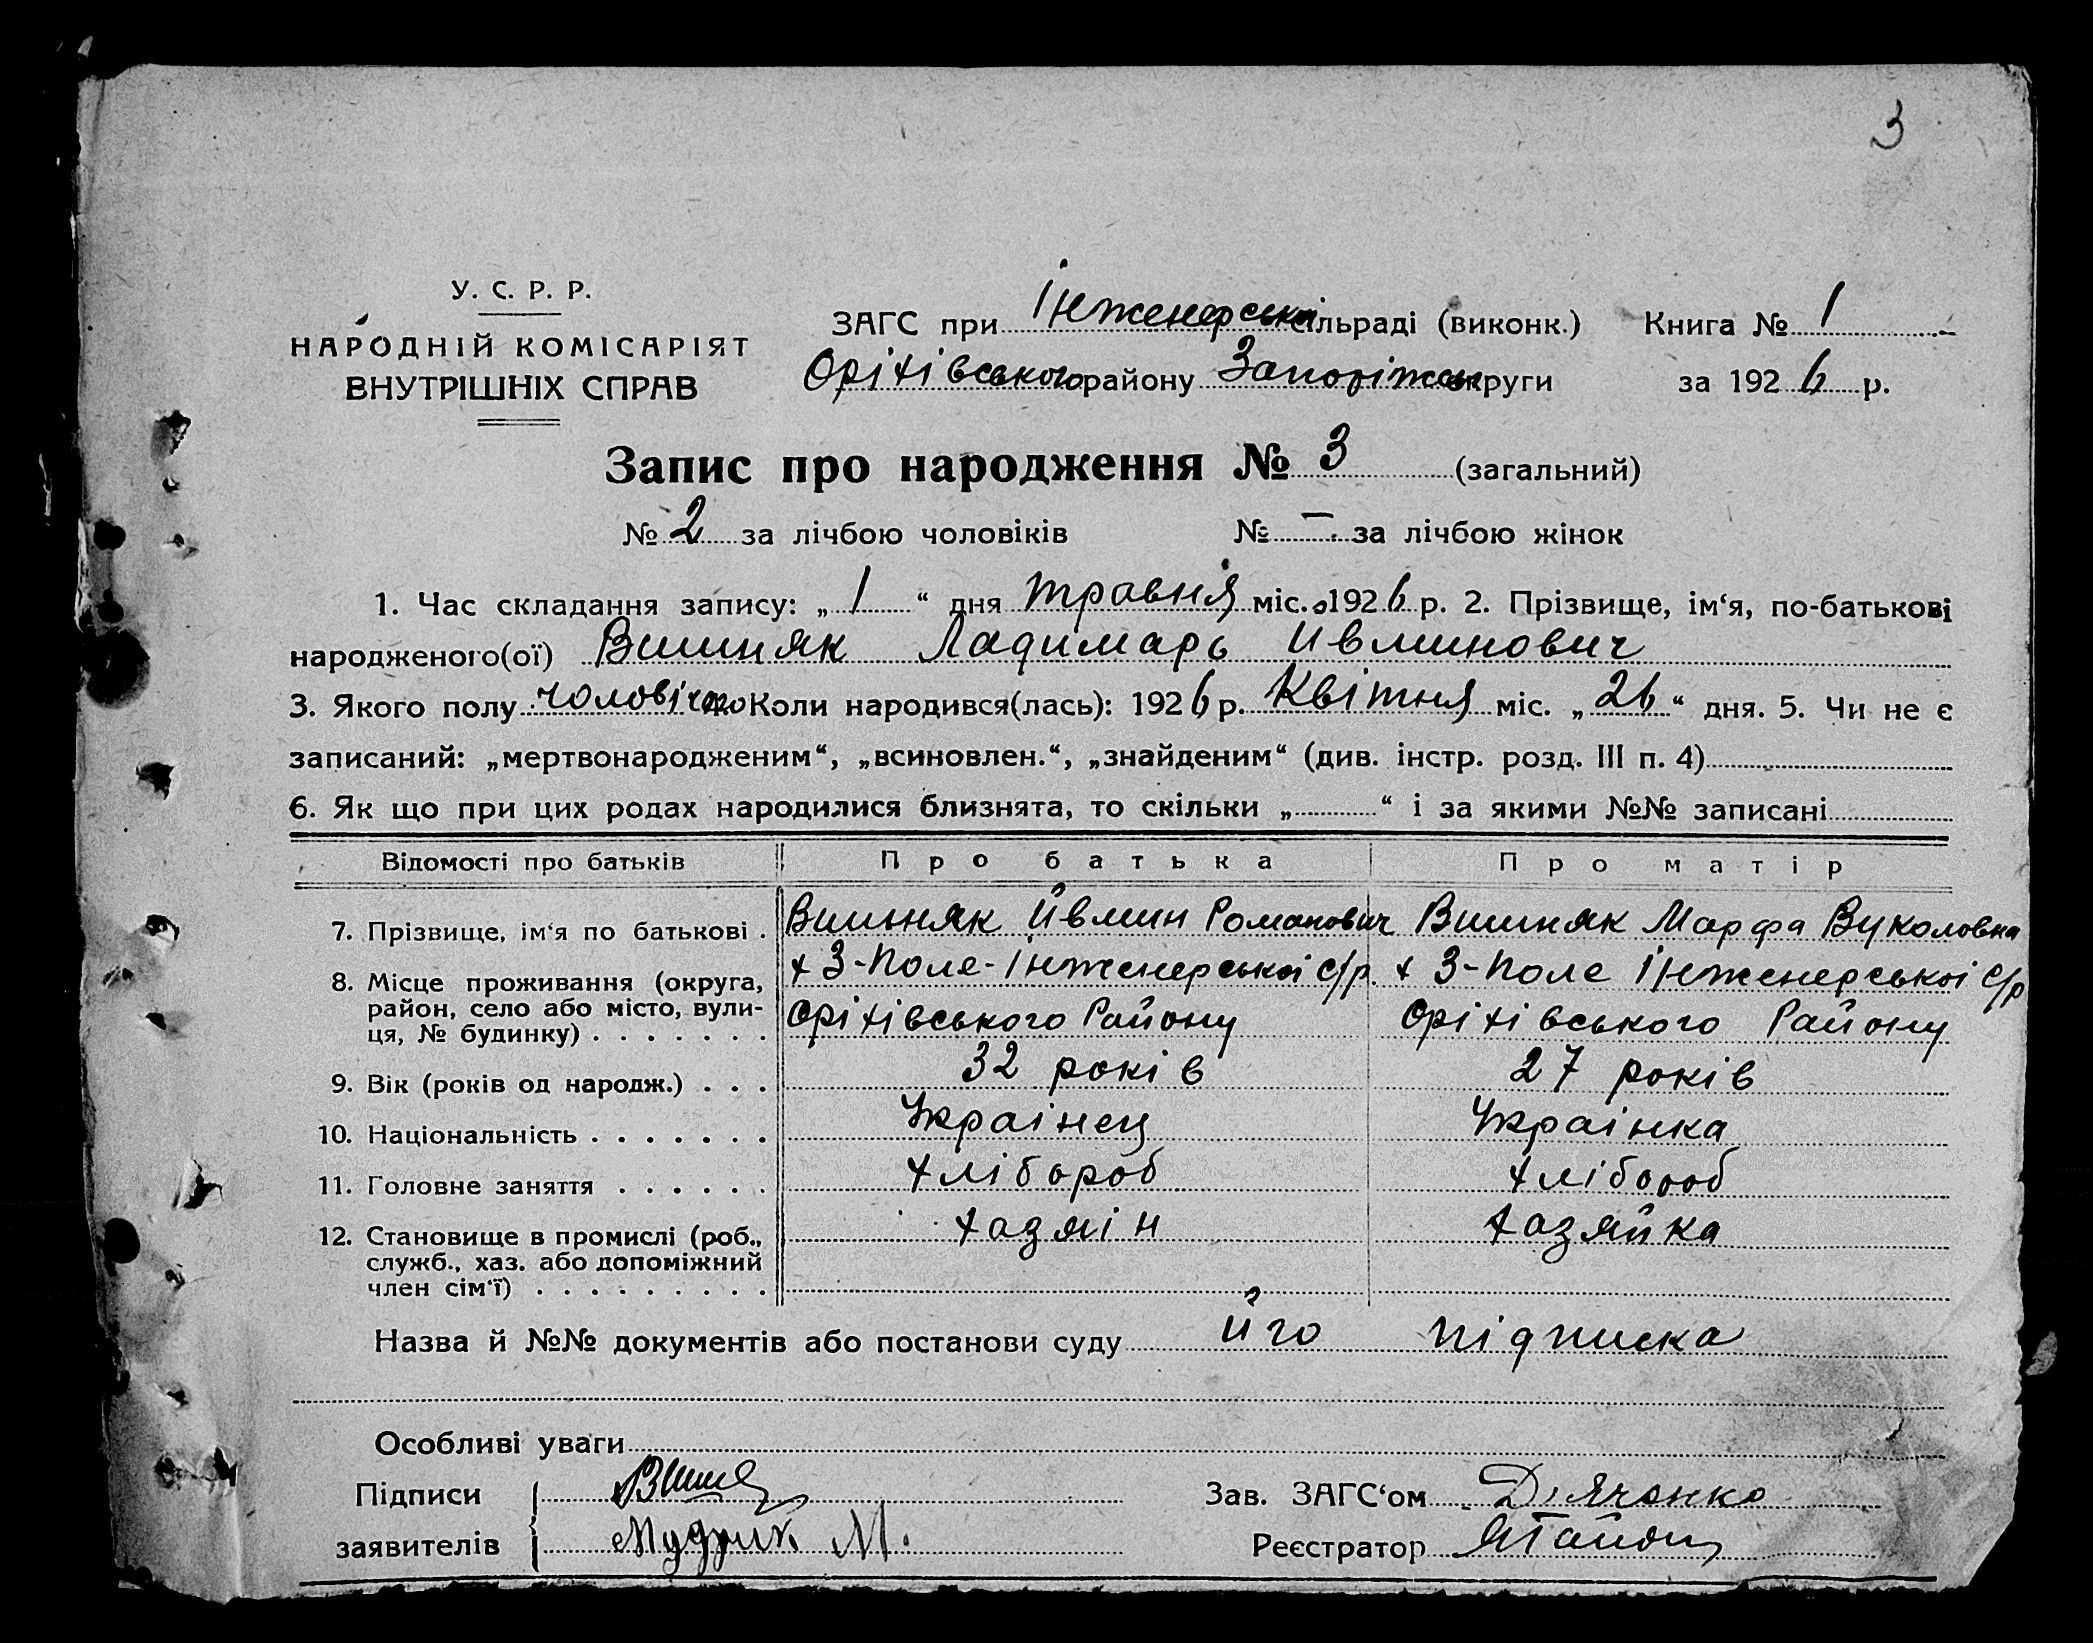 3
У. С. Р. Р.
НАРОДНІЙ КОМІСАРІЯТ
ВНУТРІШНІХ СПРАВ
ЗАГС при Інженерській сільраді (виконк.) Книга № 1
Оріхівського району Запоріжськ округи за 1926 р.
Запис про народження № 3 (загальний)
№ 2 за лічбою чоловіків № — за лічбою жінок
1. Час складання запису: „1“ дня травня міс. 1926 р. 2. Прізвище, ім‘я, по-батькові
народженого(ої) Вишняк Ладимарь Ивлинович
3. Якого полу чоловічого 4. Коли народився(лась): 1926 р. Квітня міс. „26“ дня. 5. Чи не є
записаний: „мертвонародженим“, „всиновлен.“, „знайденим“ (див. інстр. розд. III п. 4)
6. Як що при цих родах народилися близнята, то скільки „ “ і за якими №№ записані
Відомості про батьків Про батька Про матір
7. Прізвище, ім‘я по батькові . Вишняк Ивлин Романович Вишняк Марфа Вуколовна
8. Місце проживання (округа, х 3-Поле-Інженерської с/р. х 3-Поле Інженерської с/р
район, село або місто, вули- Оріхівського Району Оріхівського Району
ця, № будинку)
9. Вік (років од народж.) 32 років 27 років
10. Національність Украінец Украінка
11. Головне заняття хлібороб хлібороб
12. Становище в промислі (роб., хазяін хазяйка
служб., хаз. або допоміжний
член сім‘ї)
Назва й №№ документів або постанови суду його підписка
Особливі уваги
Підписи Зав. ЗАГС‘ом Дьяченко
заявителів Мудрик М. Реєстратор